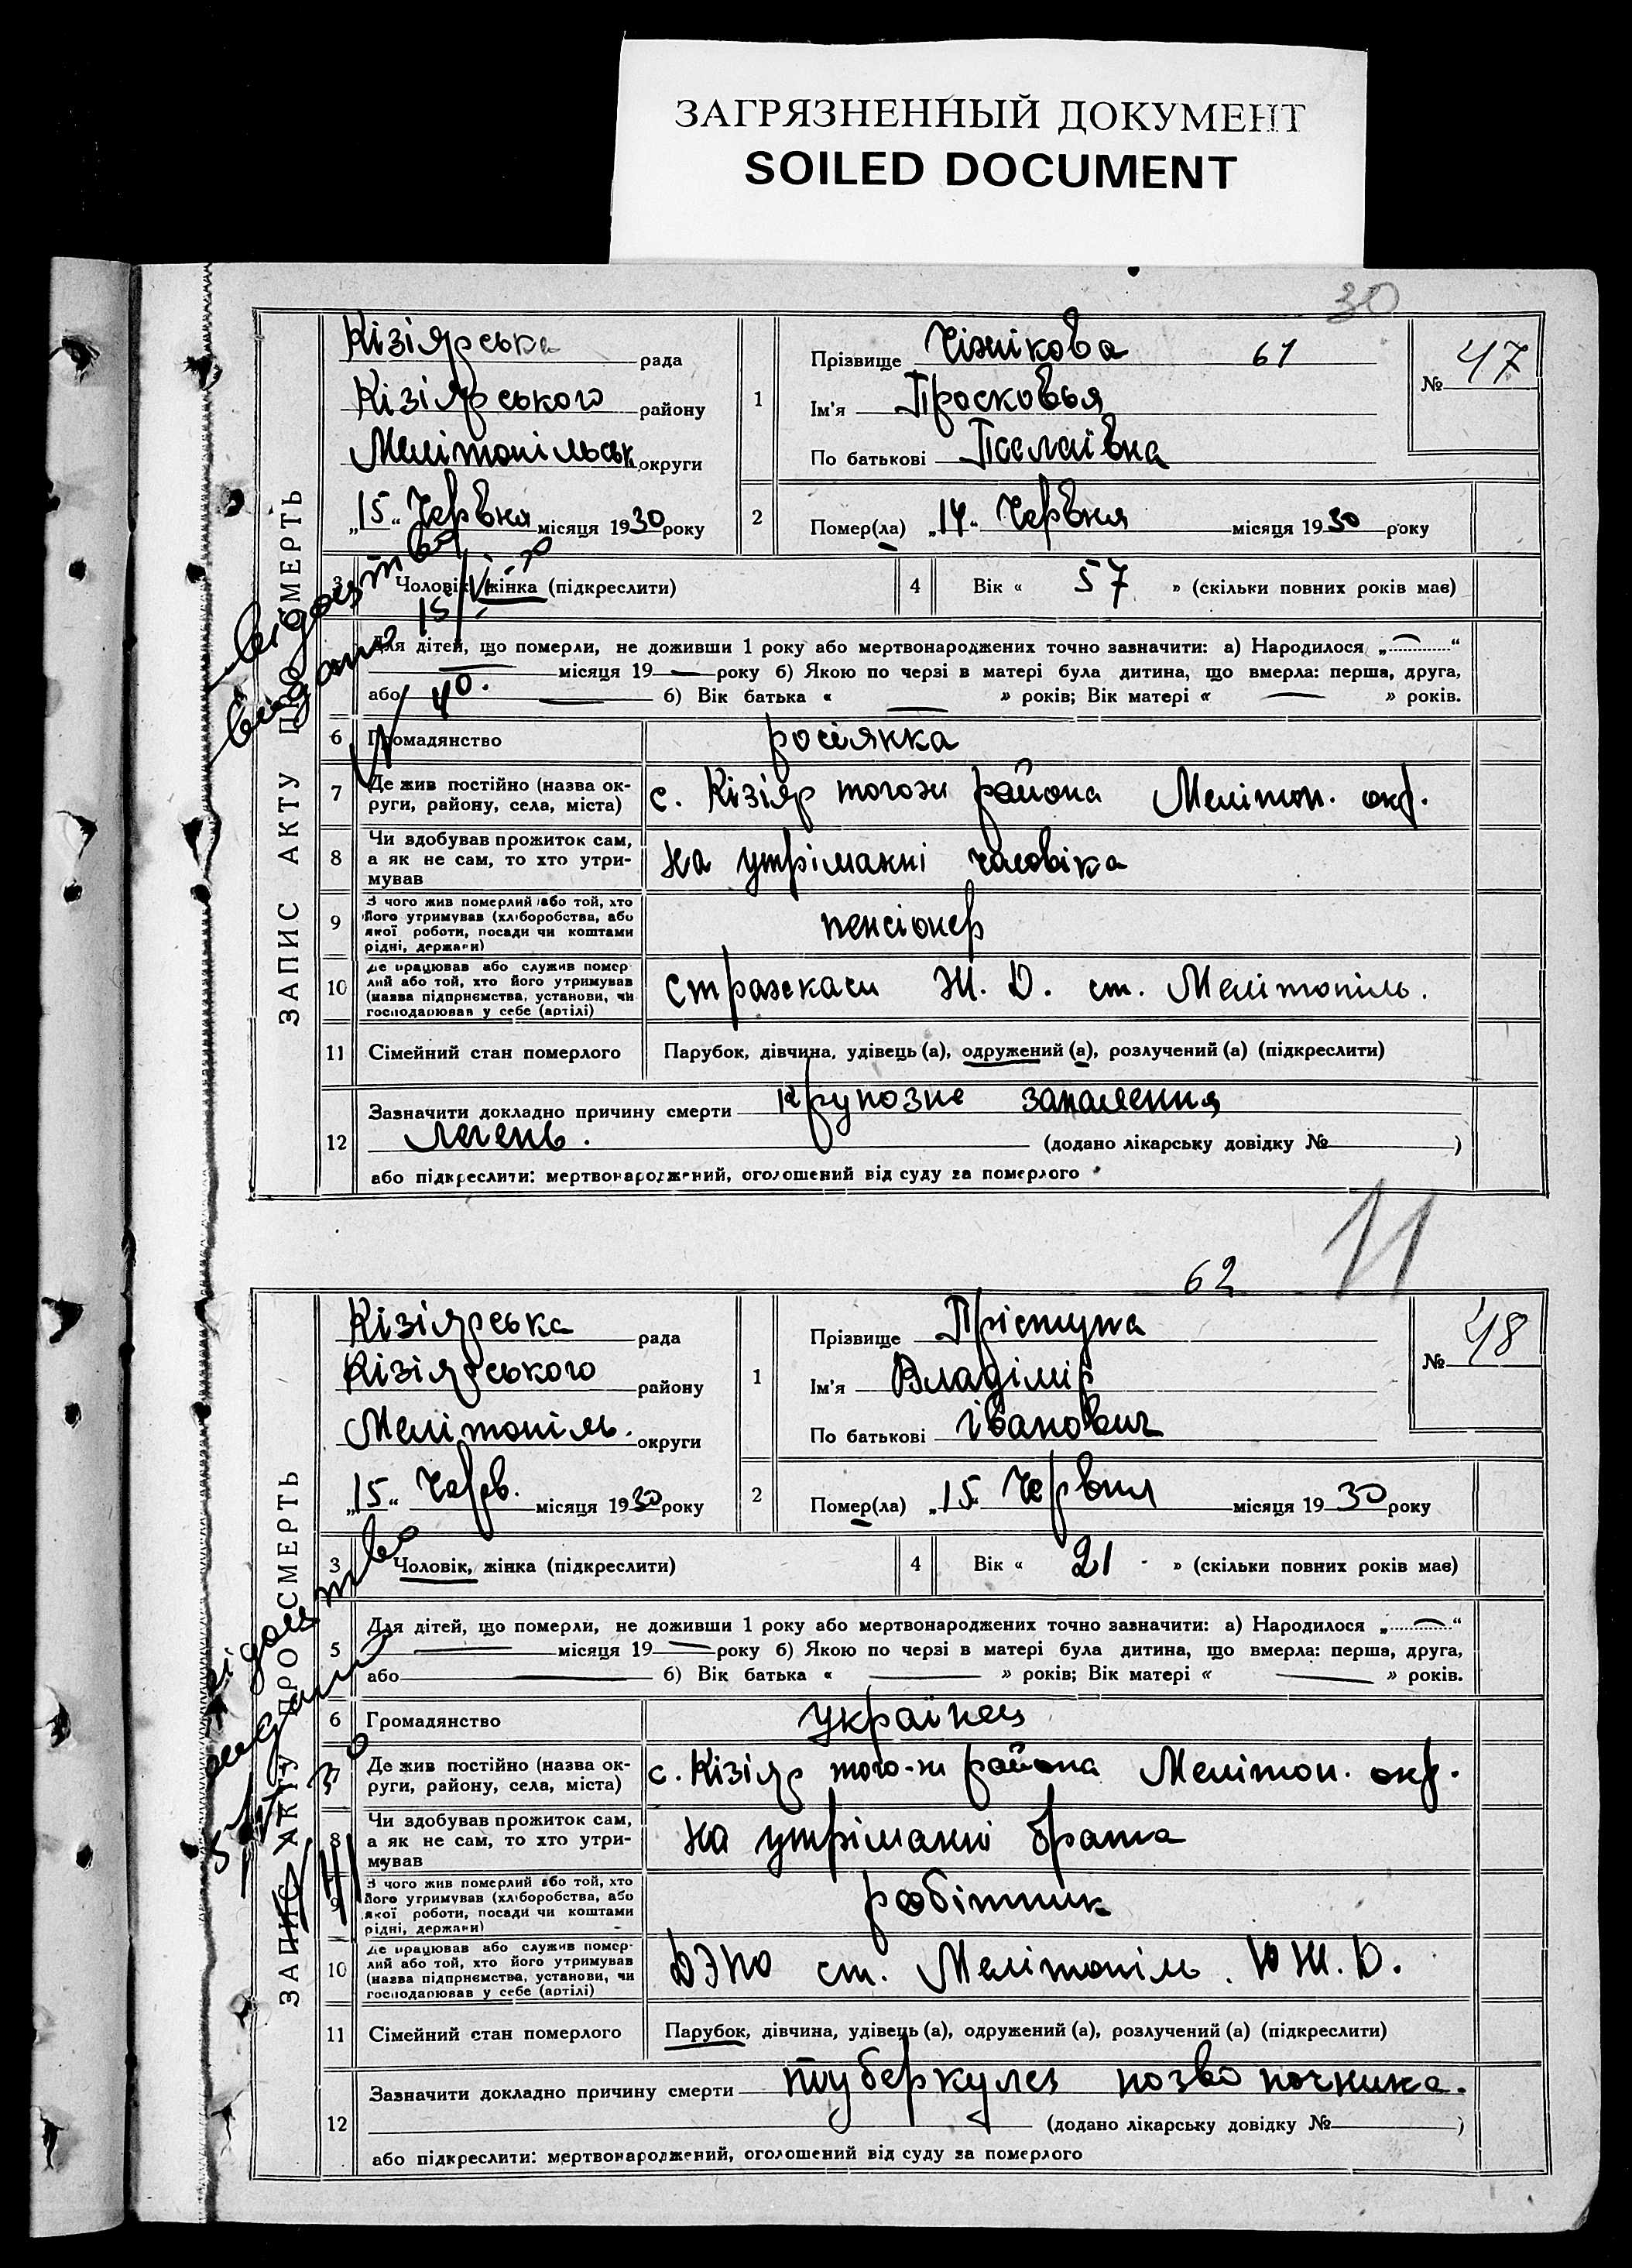 ЗАГРЯЗНЕННЫЙ ДОКУМЕНТ
SOILED DOCUMENT
30
ЗАПИС АКТУ ПРО СМЕРТЬ
Кізіярська рада
Кізіярського району
Мелітопільськ округи
„15“ Червня місяця 1930 року
1
Прізвище Чіжікова 61
Ім'я Просковья
По батькові
№ 47
2
Помер(ла) „14“ Червня місяця 1930 року
3
Чоловік, жінка (підкреслити)
4
Вік « 57 » (скільки повних років має)
Для дітей, що померли, не доживши 1 року або мертвонароджених точно зазначити: а) Народилося „............“
— місяця 19 — року б) Якою по черзі в матері була дитина, що вмерла: перша, друга,
або — б) Вік батька « — » років; Вік матері « — » років.
6
Громадянство росіянка
7
Де жив постійно (назва ок-
руги, району, села, міста)
с. Кізіяр тогож района Мелітоп. окр.
8
Чи здобував прожиток сам,
а як не сам, то хто утри-
мував
на утріманні чоловіка
9
З чого жив померлий або той, хто
його утримував (хліборобства, або
якої роботи, посади чи коштами
рідні, держави)
пенсіонер
10
Де працював або служив помер-
лий або той, хто його утримував
(назва підприємства, установи, чи
господарював у себе (артілі)
страхкаси Ж. Д. ст. Мелітопіль.
11
Сімейний стан померлого
Парубок, дівчина, удівець (а), одружений (а), розлучений (а) (підкреслити)
12
Зазначити докладно причину смерти крупозне запалення
легень.
(додано лікарську довідку № )
або підкреслити: мертвонароджений, оголошений від суду за померлого
свідоцтво
видано 15/VI-30
11
62
ЗАПИС АКТУ ПРО СМЕРТЬ
Кізіярська рада
Кізіярського району
Мелітопіль. округи
„15“ Черв. місяця 1930 року
1
Прізвище Пріступа
Ім'я Владімір
По батькові Іванович
№ 48
2
Помер(ла) „15“ Червня місяця 1930 року
3
Чоловік, жінка (підкреслити)
4
Вік « 21 » (скільки повних років має)
5
Для дітей, що померли, не доживши 1 року або мертвонароджених точно зазначити: а) Народилося „............“
— місяця 19 — року б) Якою по черзі в матері була дитина, що вмерла: перша, друга,
або — б) Вік батька « — » років; Вік матері « — » років.
6
Громадянство українец
7
Де жив постійно (назва ок-
руги, району, села, міста)
с. Кізіяр того-ж района Мелітоп. окр.
8
Чи здобував прожиток сам,
а як не сам, то хто утри-
мував
на утріманні брата
9
З чого жив померлий або той, хто
його утримував (хліборобства, або
якої роботи, посади чи коштами
рідні, держави)
робітник
10
Де працював або служив помер-
лий або той, хто його утримував
(назва підприємства, установи, чи
господарював у себе (артілі)
ДЭПО ст. Мелітопіль. Ю Ж. Д.
11
Сімейний стан померлого
Парубок, дівчина, удівець (а), одружений (а), розлучений (а) (підкреслити)
12
Зазначити докладно причину смерти туберкулез позвоночника.
(додано лікарську довідку № )
або підкреслити: мертвонароджений, оголошений від суду за померлого